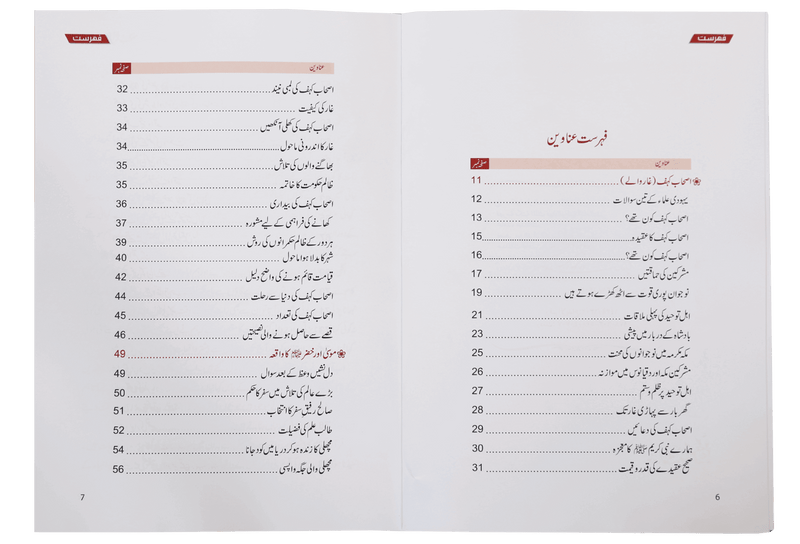 فہرست
فہرست عناوین
عناوین صفحہ نمبر
اصحاب کہف (غار والے) 11
یہودی علماء کے تین سوالات 12
اصحاب کہف کون تھے؟ 13
اصحاب کہف کا عقیدہ 15
اصحاب کہف کون تھے؟ 16
مشرکین کی حماقتیں 17
نوجوان پوری قوت سے اٹھ کھڑے ہوتے ہیں 19
اہل توحید کی پہلی ملاقات 21
بادشاہ کے دربار میں پیشی 23
مکہ مکرمہ میں نوجوانوں کی محنت 25
مشرکین مکہ اور دقیانوس میں موازنہ 26
اہل توحید پر ظلم و ستم 27
گھر بار سے پہاڑی غار تک 28
اصحاب کہف کی دعائیں 29
ہمارے نبی کریم ﷺ کا معجزہ 30
صحیح عقیدے کی قدر و قیمت 31
6
فہرست
عناوین صفحہ نمبر
اصحاب کہف کی لمبی نیند 32
غار کی کیفیت 33
اصحاب کہف کی کھلی آنکھیں 34
غار کا اندرونی ماحول 34
بھاگنے والوں کی تلاش 35
ظالم حکومت کا خاتمہ 35
اصحاب کہف کی بیداری 36
کھانے کی فراہمی کے لیے مشورہ 37
ہر دور کے ظالم حکمرانوں کی روش 39
شہر کا بدلا ہوا ماحول 40
قیامت قائم ہونے کی واضح دلیل 42
اصحاب کہف کی دنیا سے رحلت 44
اصحاب کہف کی تعداد 45
قصے سے حاصل ہونے والی نصیحتیں 46
موسیٰ اور خضر کا واقعہ 49
دل نشیں وعظ کے بعد سوال 49
بڑے عالم کی تلاش میں سفر کا حکم 50
صالح رفیق سفر کا انتخاب 51
طالب علم کی فضیلت 52
مچھلی کا زندہ ہو کر دریا میں کود جانا 54
مچھلی والی جگہ واپسی 56
7